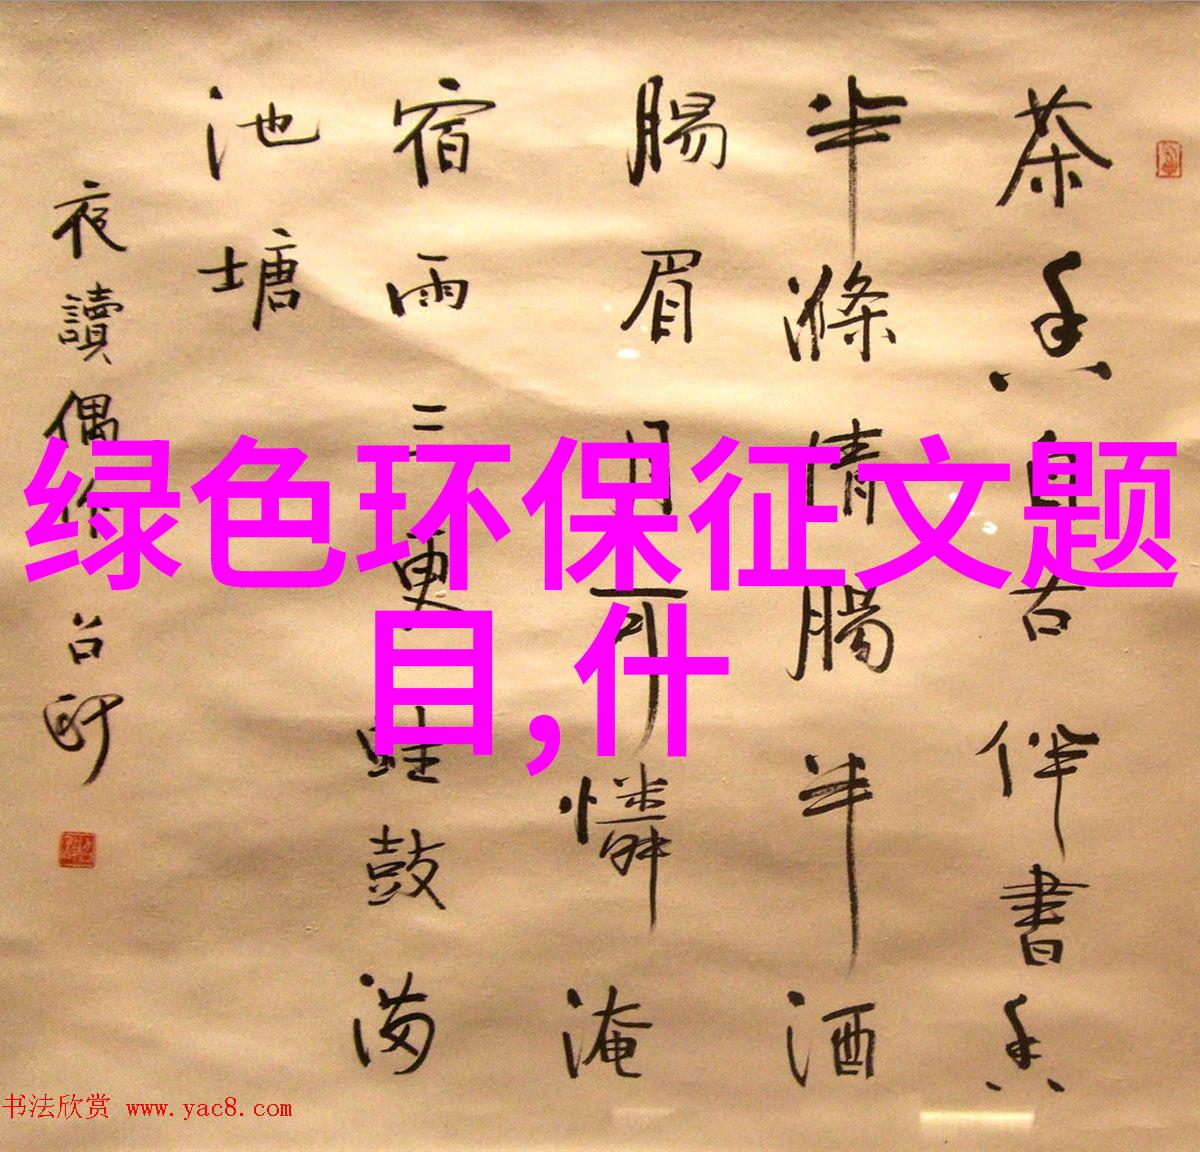 绿色环保征文题
目,什
茶香自古伴書香
半滌情腸半酒
腸眉月可憐淹
宿雨三更蛙鼓满
池塘
夜讀偶作
书法欣赏 www.yac8.com